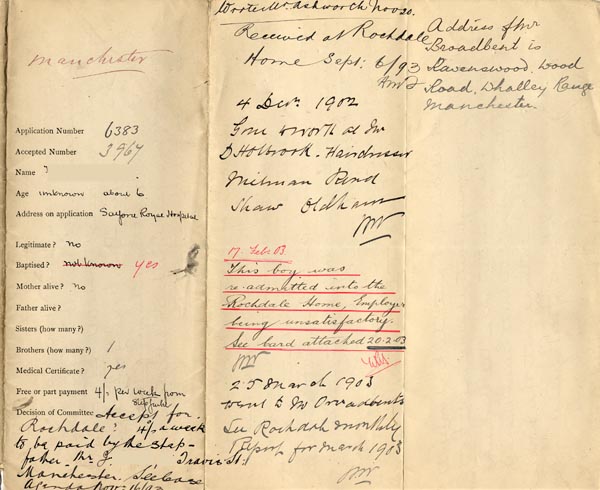 Manchester
Application Number 6383
Accepted Number 3967
Name ?
Age unknown about 6
Address on application Salford Royal Hospital
Legitimate? No
Baptised? not known yes
Mother alive? No
Father alive?
Sisters (how many?)
Brothers (how many?) 1
Medical Certificate? yes
Free or part payment 4/- per week from
Stepfather
Decision of Committee Accept for
Rochdale. 4/- a week
to be paid by the step-
father Mr J. Travis St.
Manchester. See Case
Agenda Nov. 16/92
Ashworth Nov 20.
Received at Rochdale
Home Sept. 6/93
4 Decr. 1902
Gone to work at Mr
D Holbrook. Hairdresser
Milman
Shaw Oldham
17. Feb 03.
This boy was
re-admitted into the
Rochdale Home, Employer
being unsatisfactory.
See card attached 20.2.03
25 March 1903
went to Mr Broadbents
See Rochdale monthly
Report for March 1903
Address of Mr
Broadbent is
Ravenswood. Wood
Road, Whalley Range
Manchester.